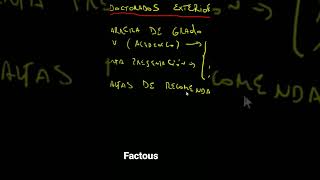 DOCTORADOS EXTERIOR
ARRERA DE GRADO
V (ACADEMICO)
ARTA PRESENTACION
ARTAS DE RECOMENDA
Factous